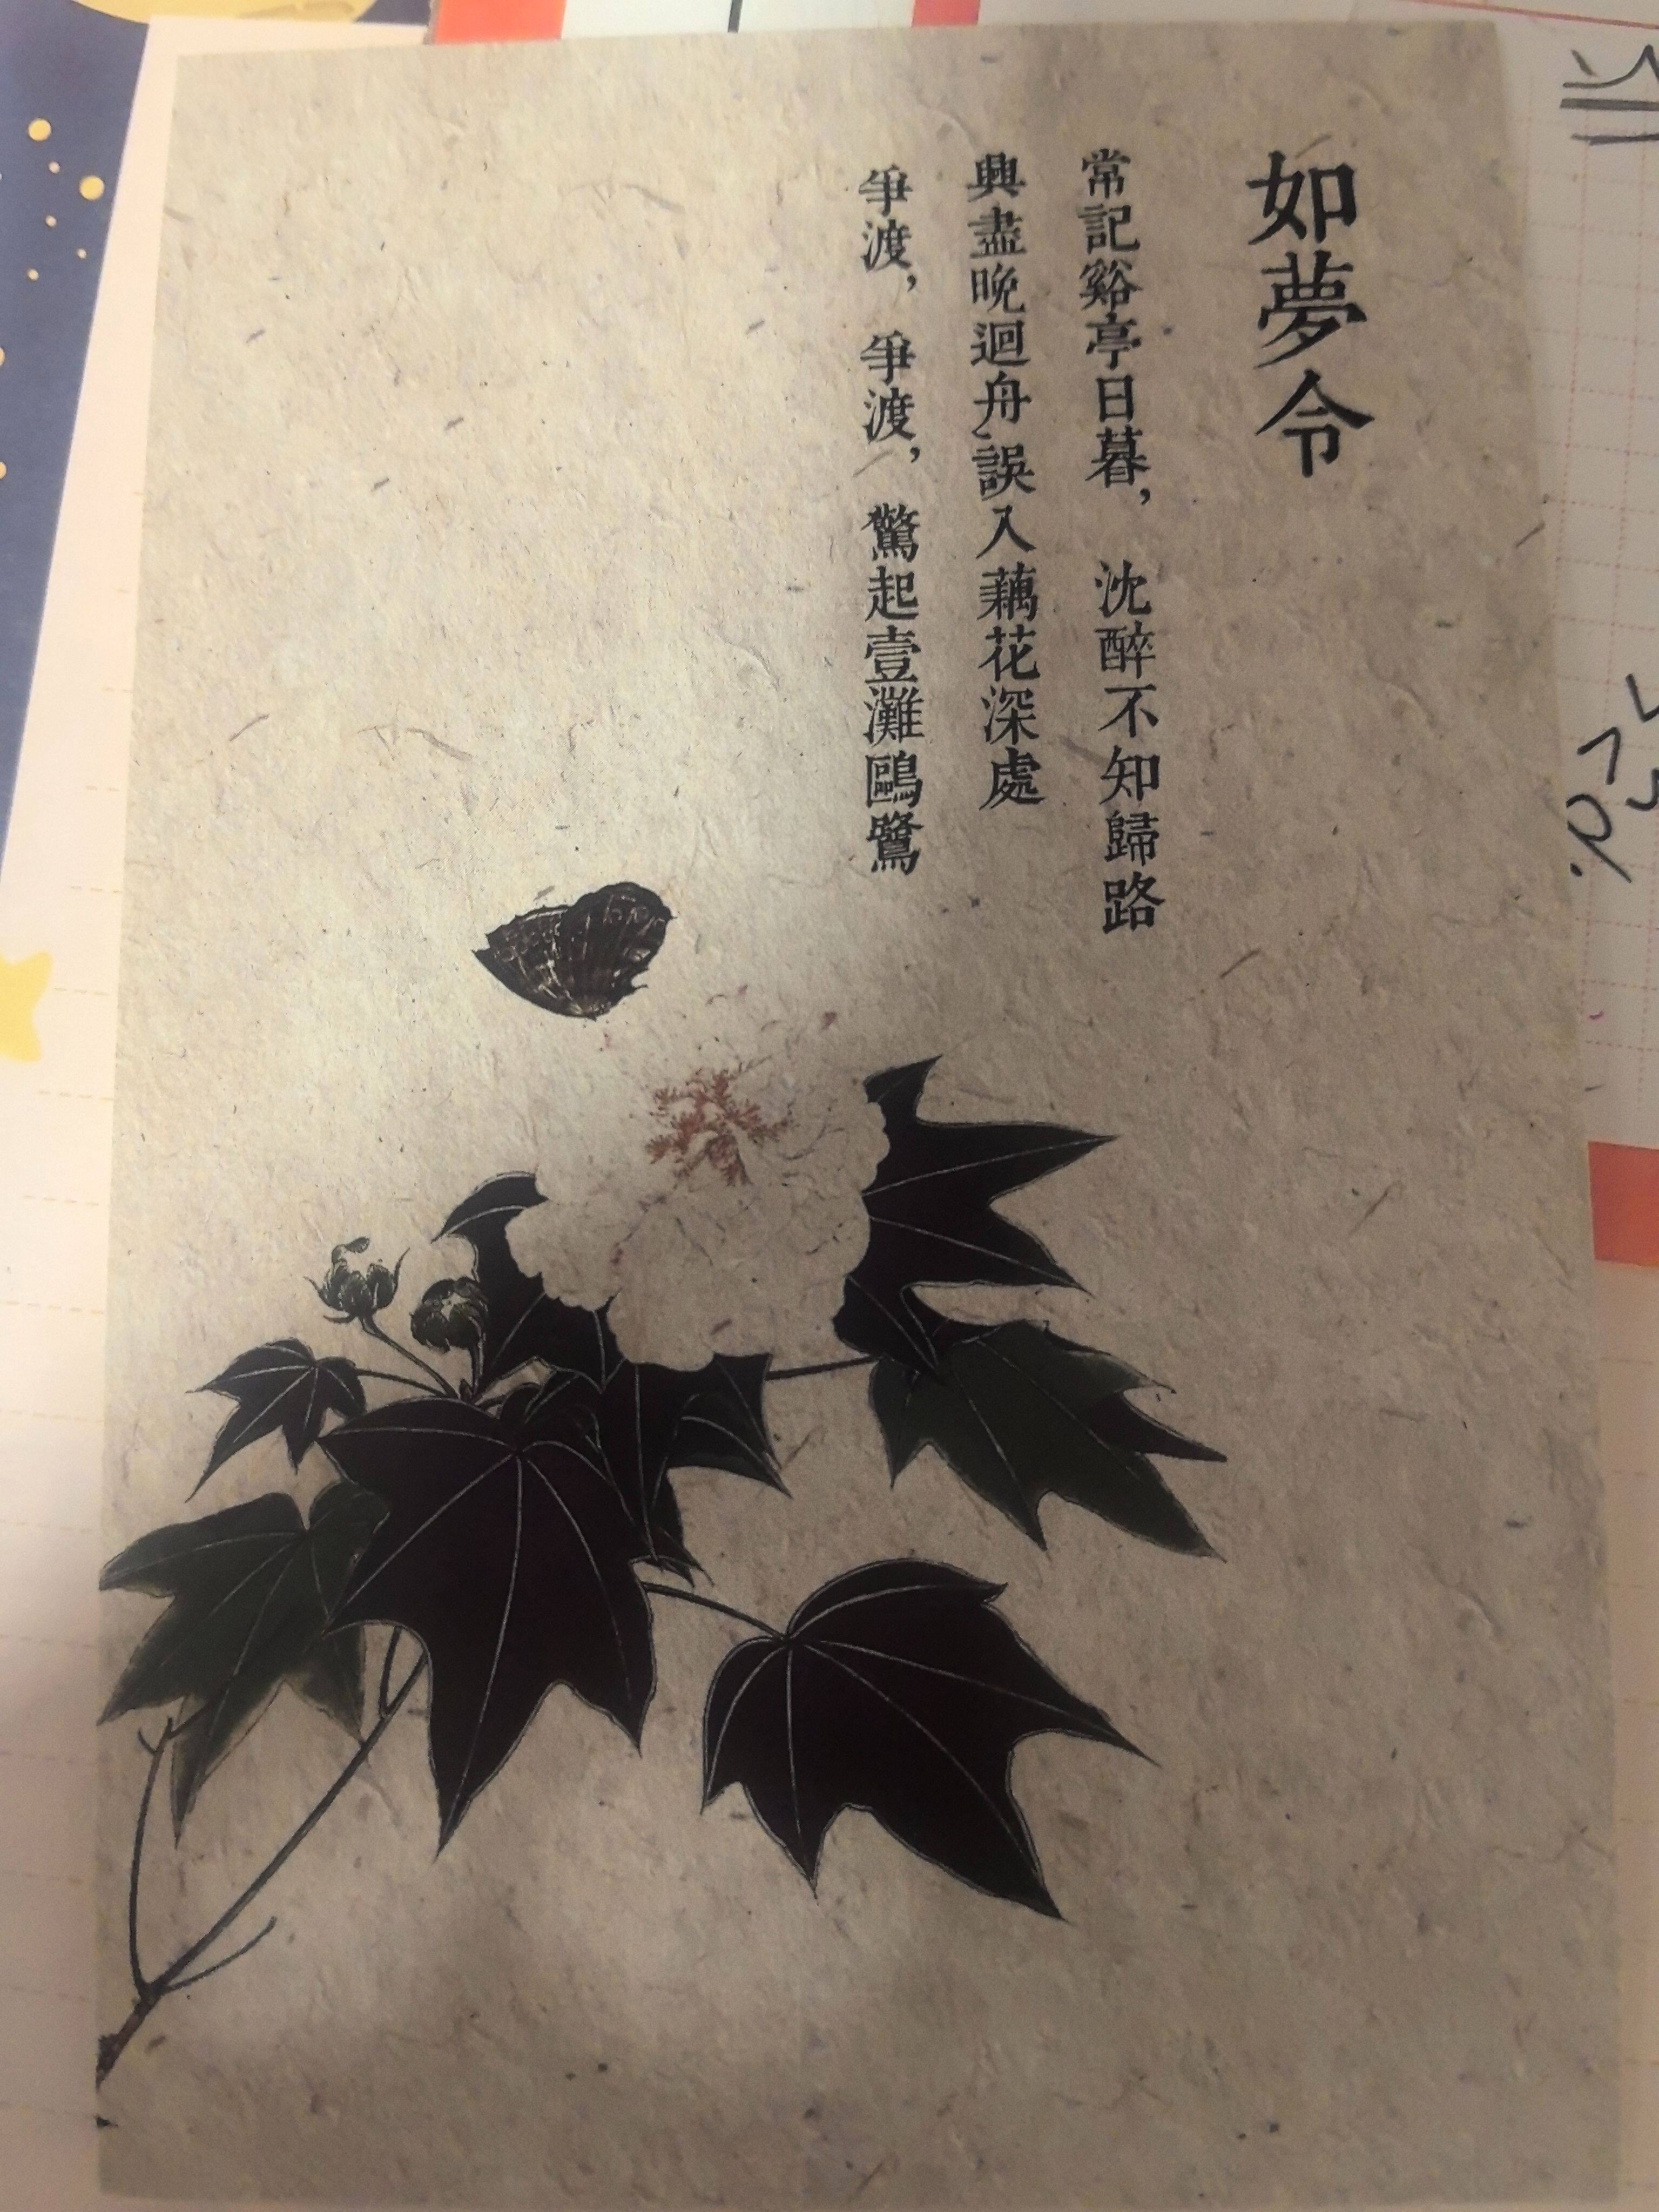 如夢令
常記谿亭日暮，沈醉不知歸路
興盡晚迴舟、誤入藕花深處
爭渡，爭渡，驚起壹灘鷗鷺